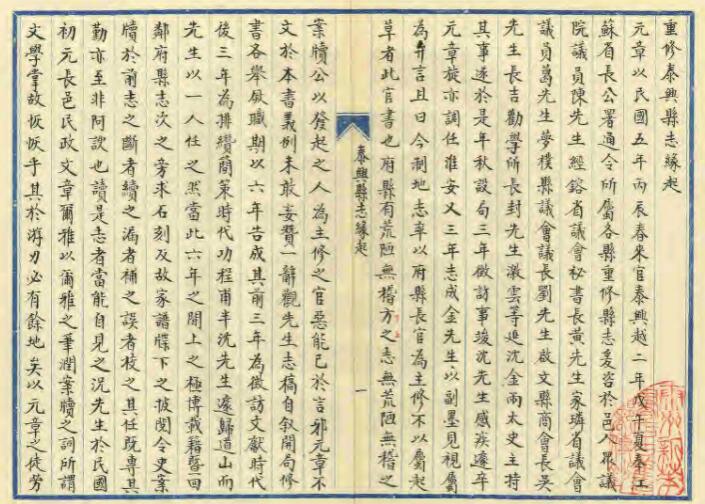 重修泰興縣志緣起
元章以民國五年丙辰春來官泰興越二年戊午夏奉江
蘇省長公署通令所屬各縣重修縣志爰咨於邑人眾議
院議員陳先生經鎔省議會秘書長黃先生家璘省議會
議員葛先生夢樸縣議會議長劉先生啟文縣商會長吳
先生長吉勸學所長封先生激雲等延沈金兩太史主持
其事遂於是年秋設局三年徵訪事竣沈先生感疾遽卒
元章旋亦調任淮安又三年志成金先生以副墨見視屬
為弁言且曰今制地志率以府縣長官為主修不以屬起
草者此官書也府縣有荒陋無稽方之志無荒陋無稽之
泰興縣志緣起
一
案牘公以發起之人為主修之官惡能已於言邪元章不
文於本書義例未敢妄贊一辭觀先生志稿自敘開局修
書各舉厥職期以六年告成其前三年為徵訪文獻時代
後三年為排纘簡策時代功程甫半沈先生遽歸道山而
先生以一人任之然當此六年之間上之極博載籍暨四
鄰府縣志次之旁求石刻及故家譜牒下之披閱令史案
牘於前志之斷者續之漏者補之誤者校之其任既專其
勤亦至非阿諛也讀是志者當能自見之況先生於民國
初元長邑民政文章爾雅以爾雅之筆潤案牘之詞所謂
文學掌故恢恢乎其於游刃必有餘地矣以元章之徒勞